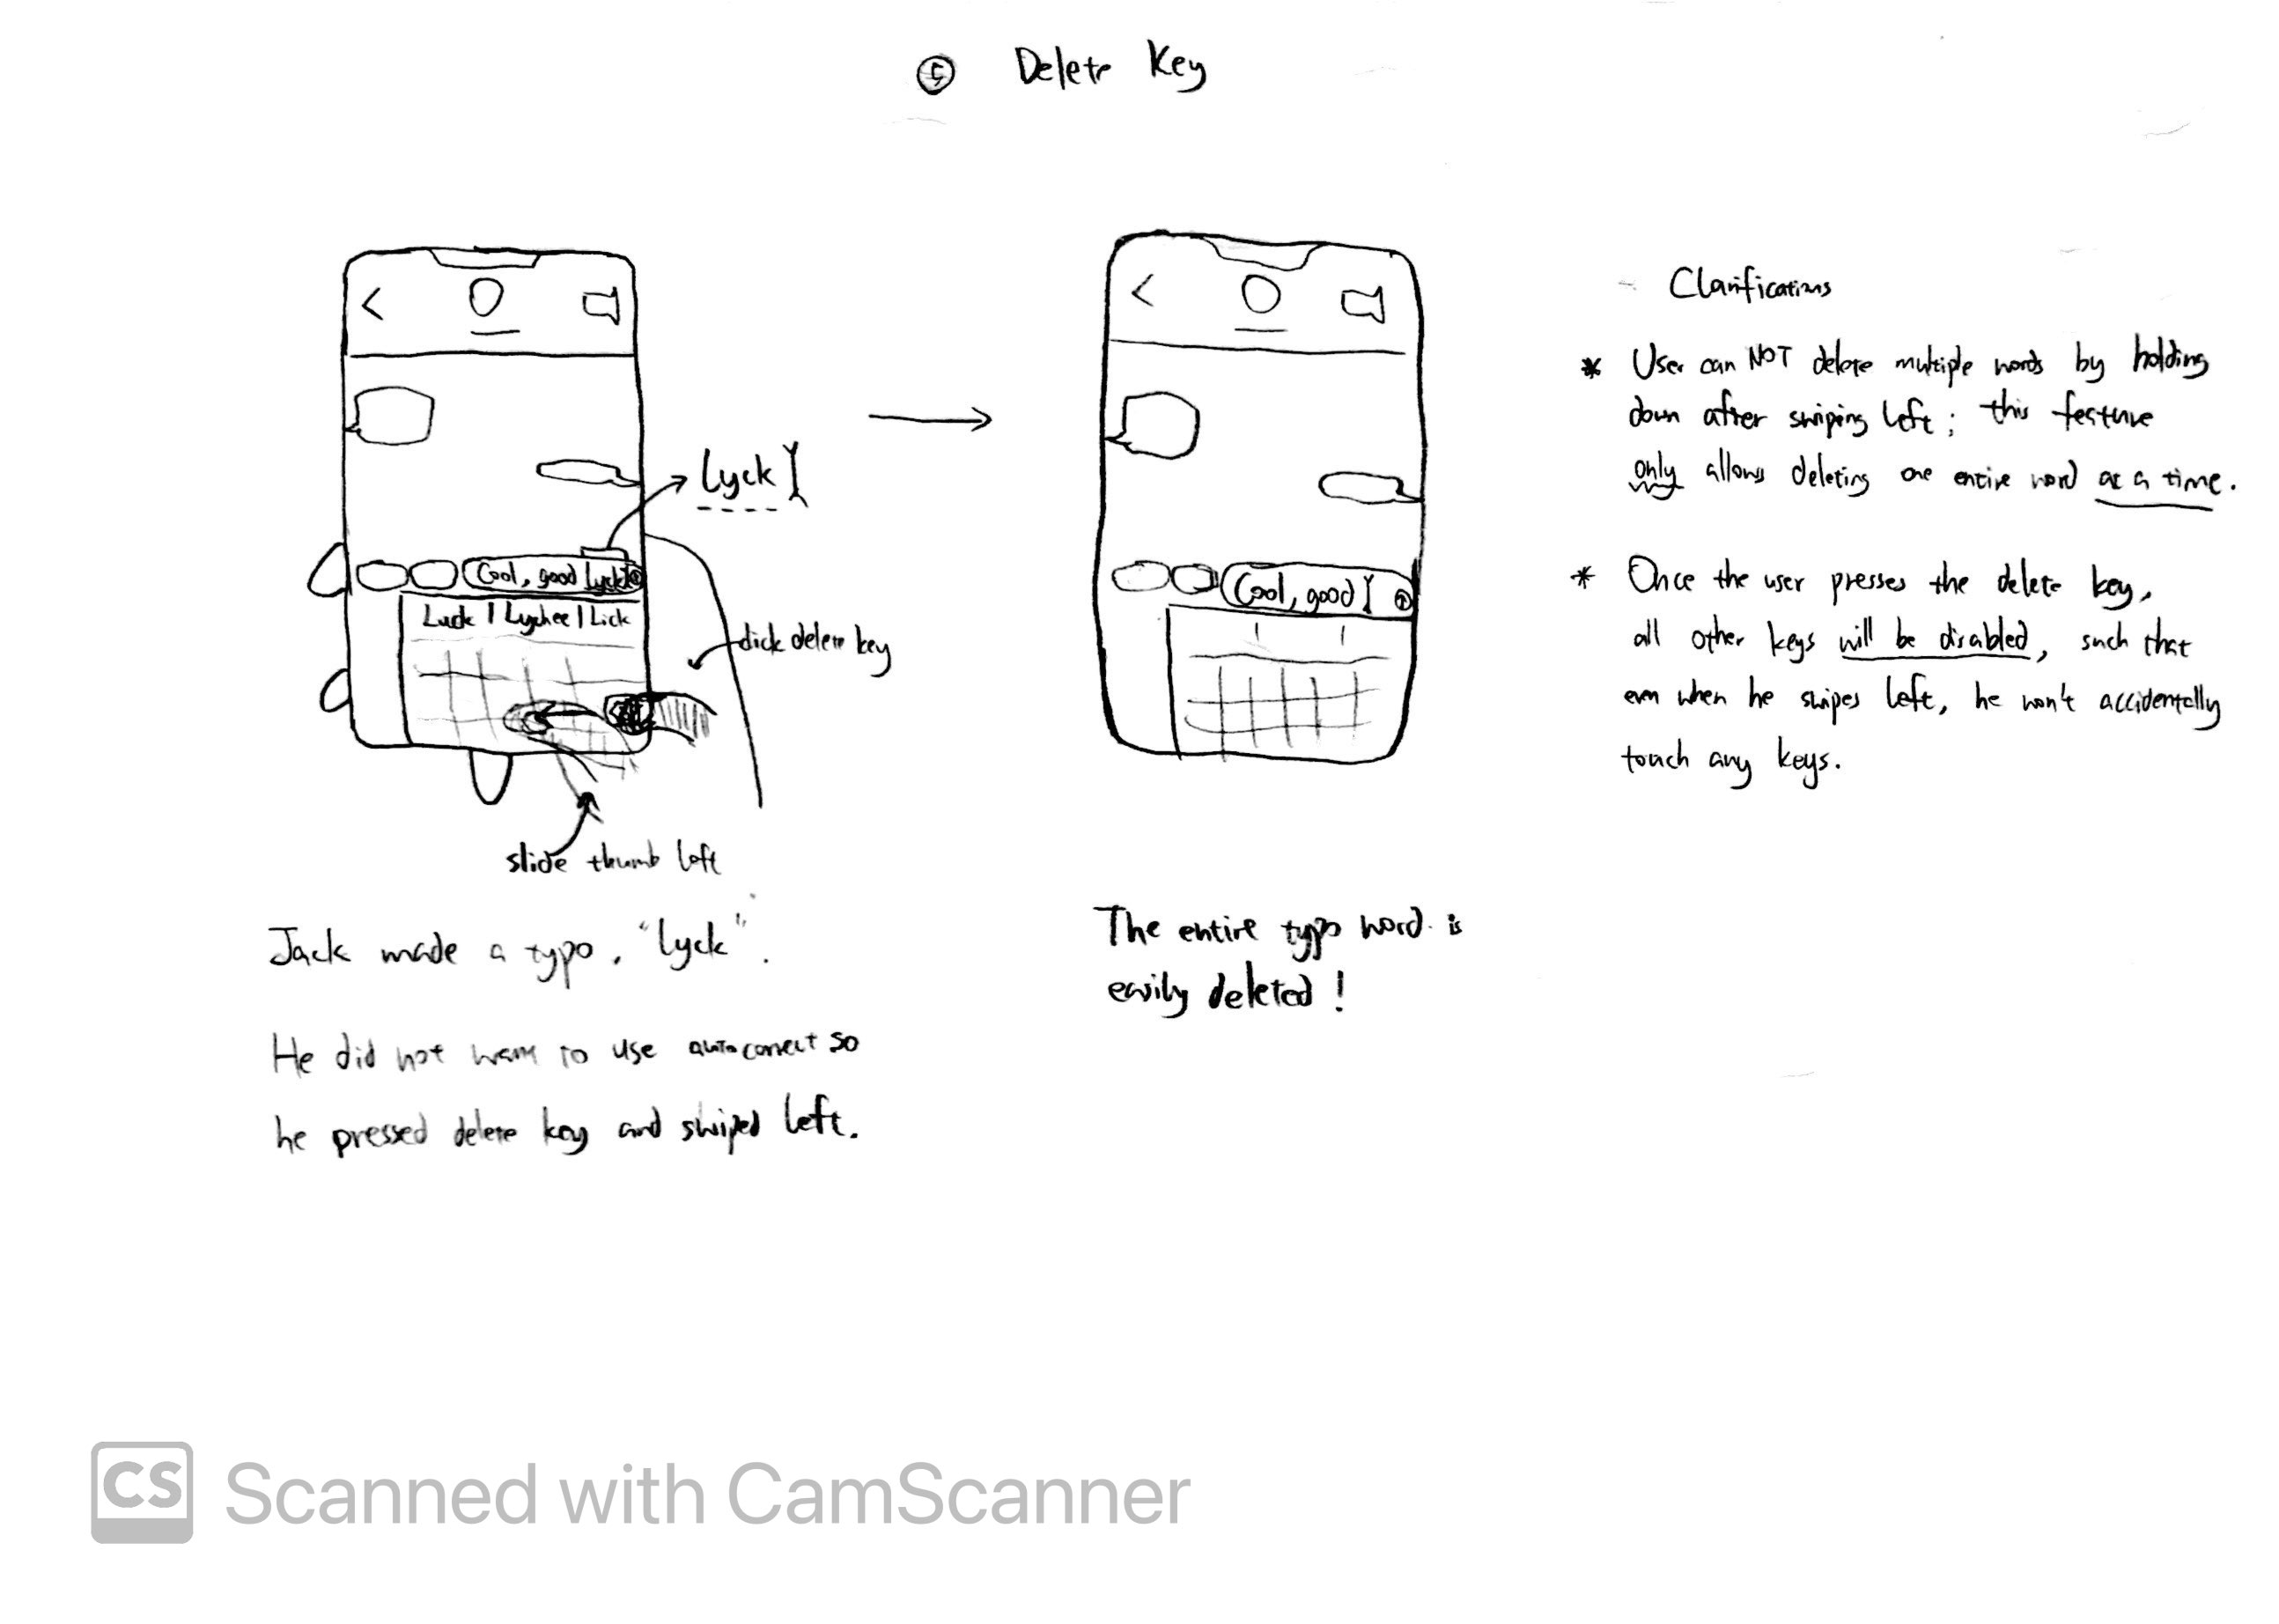 ⑤ Delete Key
Lyck
Cool, good Lyck
Luck | Lychee | Lick
click delete key
slide thumb left
Jack made a typo, "lyck".
He did not want to use autocorrect so
he pressed delete key and swiped left.
Cool, good
The entire typo word is
easily deleted!
- Clarifications
* User can NOT delete multiple words by holding
down after swiping left; this feature
only allows deleting one entire word at a time.
* Once the user presses the delete key,
all other keys will be disabled, such that
even when he swipes left, he won't accidentally
touch any keys.
CS Scanned with CamScanner